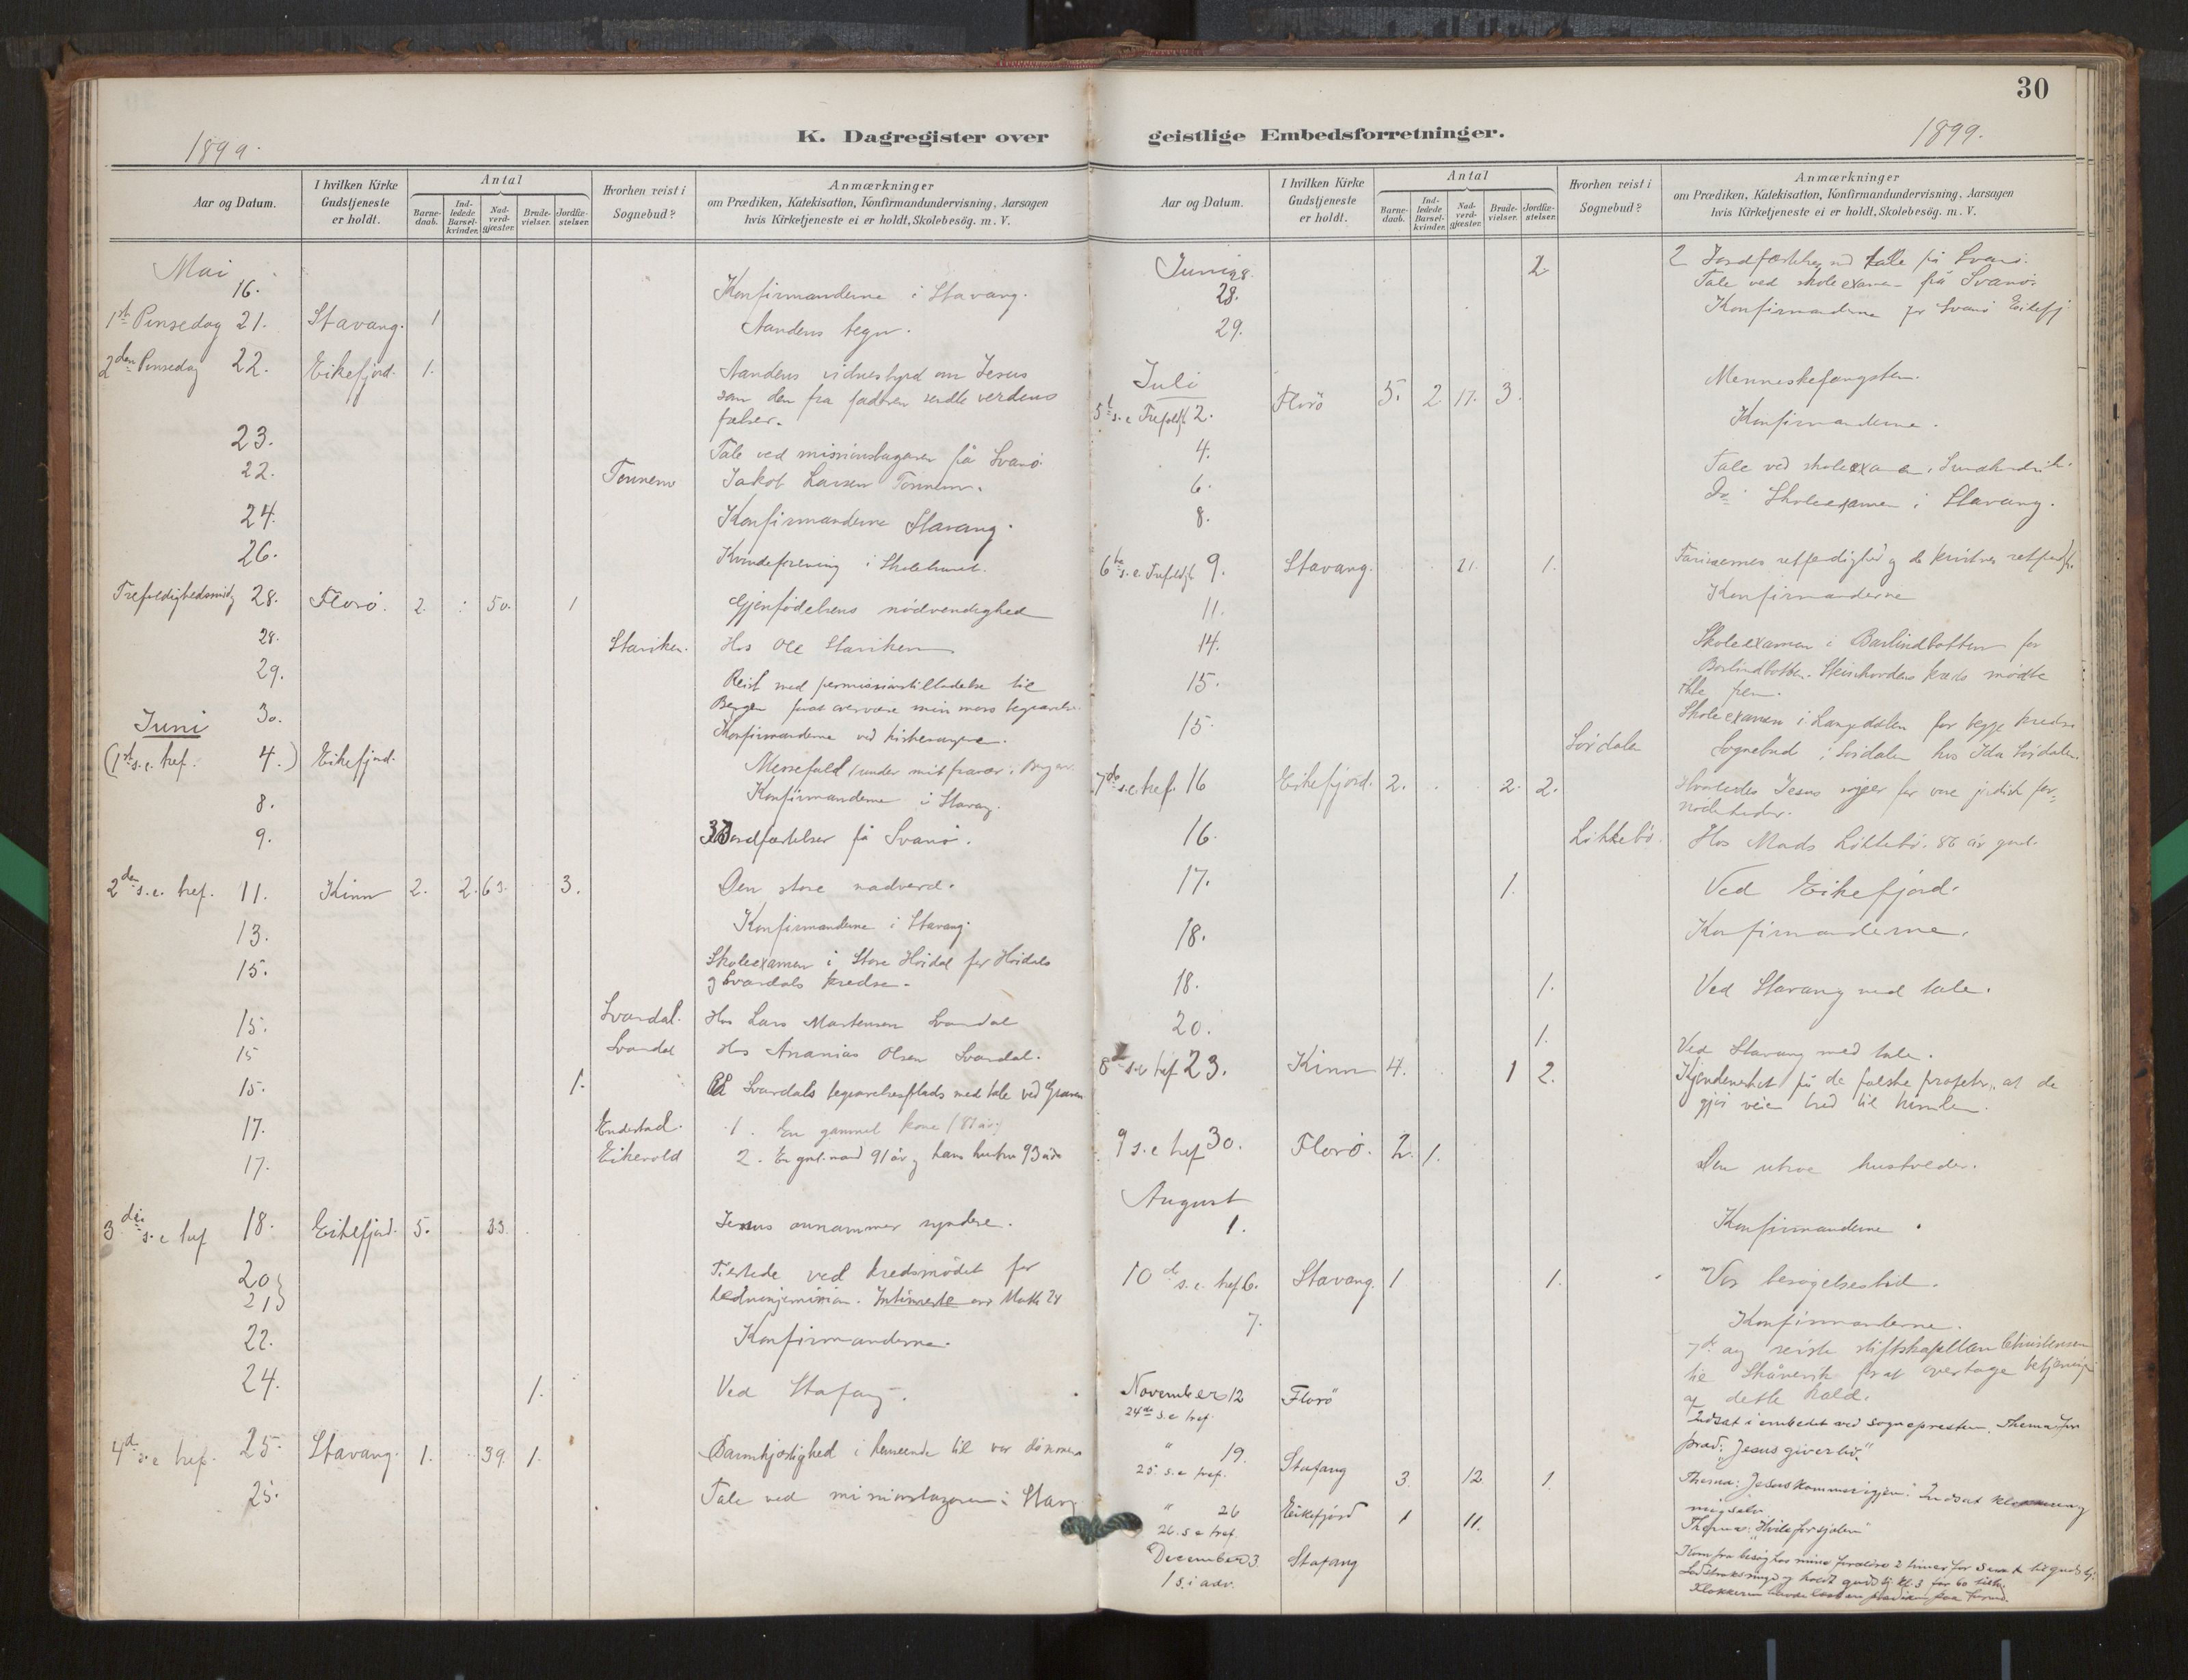 30
K. Dagregister over
1899.
Aar og Datum.
I hvilken Kirke Gudstjeneste er holdt.
Antal
Barne-daab.
Ind-ledede Barsel-kvinder.
Nad-verd-gjæster.
Brude-vielser.
Jordfæ-stelser.
Hvorhen reist i Sognebud?
Anmærkninger
om Prædiken, Katekisation, Konfirmandundervisning, Aarsagen
hvis Kirketjeneste ei er holdt, Skolebesög. m. V.
Mai
16. Konfirmanderne i Stavang.
1ste Pinsedag 21. Stavang. 1 Aandens tegn.
2den Pinsedag 22. Eikefjord. 1. Aandens vidnesbyrd om Jesus
som den fra faderen sendte verdens
frelser.
23. Tale ved missionsbazaren på Svanö.
22. Tonnem Jakob Larsen Tonnem.
24. Konfirmanderne Stavang.
26. Kvindeforening i Skolehuset.
Trefoldighedssøndg 28. Florö. 2. 50. 1 Gjenfödelsens nödvendighed
28. Staviken. Hos Ole Staviken
29. Reist med permissionstilladelse til
Bergen forat overvære min mors begravelse.
30. Konfirmanderne ved
Juni
(1ste s. e. tref. 4.) Eikefjord. Messefald (under mit fravær i Bergen.
8. Konfirmanderne i Stavang.
9. 3 Jordfæstelser på Svanö.
2den s. e. tref. 11. Kinn 2. 2. 63. 3. Den store nadverd.
13. Konfirmanderne i Stavang.
15. Skoleexamen i Store Höidal for Höidals
og Svardals kredse.
15. Svardal. Hos Lars Martensen Svardal
15 Svardal Hos Ananias Olsen Svardal.
15. 1. På Svardals begravelsesplads med tale ved Graven
17. Endestad. 1. En gammel kone (87 år)
17. Eikevold 2. En gml. mand 91 år og hans hustru 93 år
3die s. e. tref 18. Eikefjord. 5. 33. Jesus annammer syndere.
20 Tilstede ved kredsmödet for
21 hedningemission. over Math 24
22. Konfirmanderne.
24. 1. Ved Stafang.
4de s. e. tref. 25. Stavang. 1. 39. 1. Barmhjertighed i henseende til vor dömmen
25. Tale ved missionsbazaren i Stavg
geistlige Embedsforretninger.
1899.
Aar og Datum.
I hvilken Kirke Gudstjeneste er holdt.
Antal
Barne-daab.
Ind-ledede Barsel-kvinder.
Nad-verd-gjæster.
Brude-vielser.
Jordfæ-stelser.
Hvorhen reist i Sognebud?
Anmærkninger
om Prædiken, Katekisation, Konfirmandundervisning, Aarsagen
hvis Kirketjeneste ei er holdt, Skolebesög. m. V.
Juni 28. 2 2 Jordfæstelser med tale på Svanö.
28. Tale ved skoleexamen på Svanö.
29. Konfirmanderne for Svanö Eikefj
Juli
5te s. e. Trefoldgh 2. Florö 5. 2 17. 3. Menneskefangsten.
4. Konfirmanderne.
6. Tale ved skoleexamen
8. Do Skoleexamen i Stavang.
6te s. e. Trefoldgh 9. Stavang. 21. 1. Farisæernes retfærdighed og de kristnes retfærdh.
11. Konfirmanderne
14. Skoleexamen i Barlindbotten for
15. Barlindbotten. kreds mödte
ikke frem.
15. Skoleexamen i Langedalen for begge kredse
Sördalen Sognebud i Sördalen hos Ida Sördalen.
7de s. e. tref. 16 Eikefjord. 2. 2. 2. Hvorledes Jesus sörger for vore jordiske for-
nödenheder.
16. Löktebö. Hos Mads Löktebö. 86 år gml.
17. 1. Ved Eikefjord.
18. Konfirmanderne.
18. 1. Ved Stavang med tale.
20. 1. Ved Stavang med tale.
8de s. e. tref 23. Kinn 4. 1 2. Kjendemerket på de falske profeter, at de
gjör veien bred til himlen.
9 s. e. tref 30. Florö. 2. 1. Den utro husholder.
August
1. Konfirmanderne.
10de s. e. tref 6. Stavang. 1 1. Vor besögelsestid.
7. Konfirmanderne.
7de aug reiste stiftskapellan Christensen
til Skånevik forat overtage betjeningen
af dette kald.
November 12 Florö Indsat i embedet ved sognepresten. Thema for
24de s. e. tref. præd.: "Jesus giver liv."
" 19. Stafang 3 12 1. Thema: Jesus kommer igjen. Indsat
25. s. e. tref. mig selv.
" 26 Eikefjord 1 11. Thema: "Hvile for sjælen"
26. s. e. tref.
December 3. Stafang Kom fra besög hos mine forældre 2 timer for sent til gudstj.
1 s. i adv. Lod straks ringe og holdt gudstj. kl. 3 for 60 tilh.
Klokkeren havde